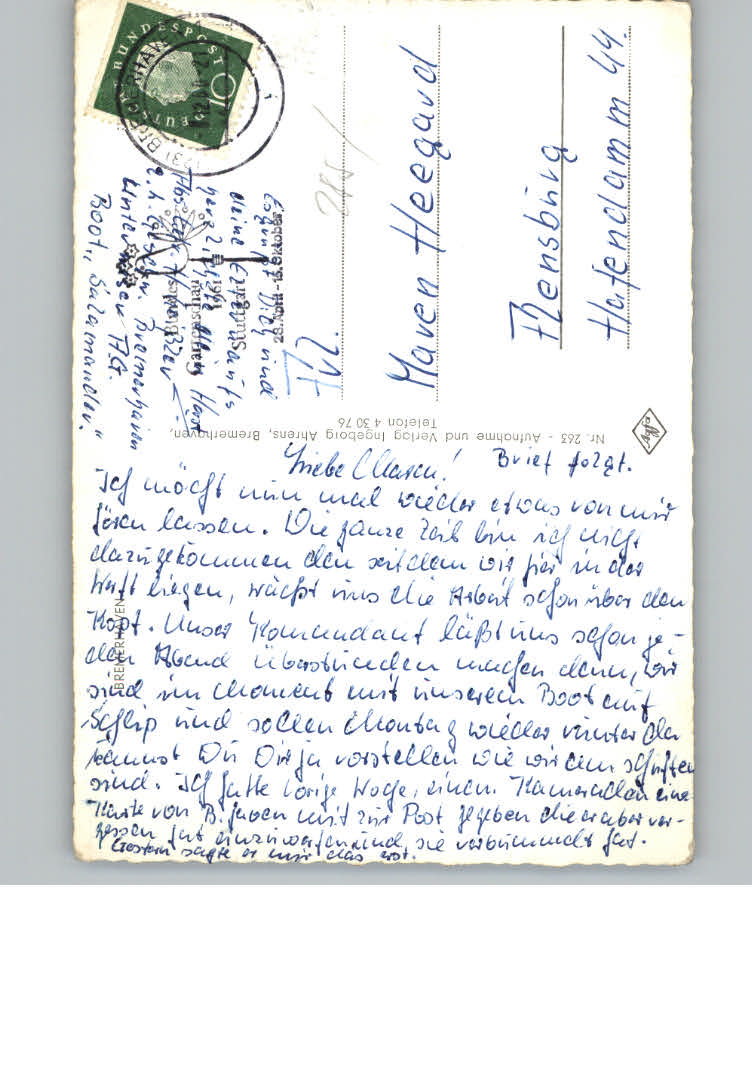 Liebe Maren! Brief folgt.
Ich möcht nun mal wieder etwas von mir
hören lassen. Die ganze Zeit bin ich nicht
dazugekommen den seitdem wir hier in der
Werft liegen, wächst uns die Arbeit schon über den
Kopf. Unser Komandant läßt uns schon je-
den Abend Überstunden machen denn, wir
sind im Moment mit unserem Boot auf
Schlip und sollen Montag wieder runter da
kannst Du Dir ja vorstellen wie wir am schuften
sind. Ich hatte vorige Woche, einen Kameraden eine
Karte von B. haven mit zur Post gegeben die er aber ver-
gessen hat einzuwerfen und sie verbummelt hat.
Gestern sagte er mir das erst.
Es grüßt Dich und
deine Eltern aufs
herzlichste Dein
z.Z. Bremerhaven
Unterweser A.G.
Boot „Salamander"
Frl.
Maren Heegard
Flensburg
Hafendamm 44.
285/
DEUTSCHE BUNDESPOST
10
Bundes
Gartenschau
1961
Stuttgart
28. April - 15. Oktober
BREMERHAVEN
Nr. 263 - Aufnahme und Verlag Ingeborg Ahrens, Bremerhaven,
Telefon 4 30 76
Agfa